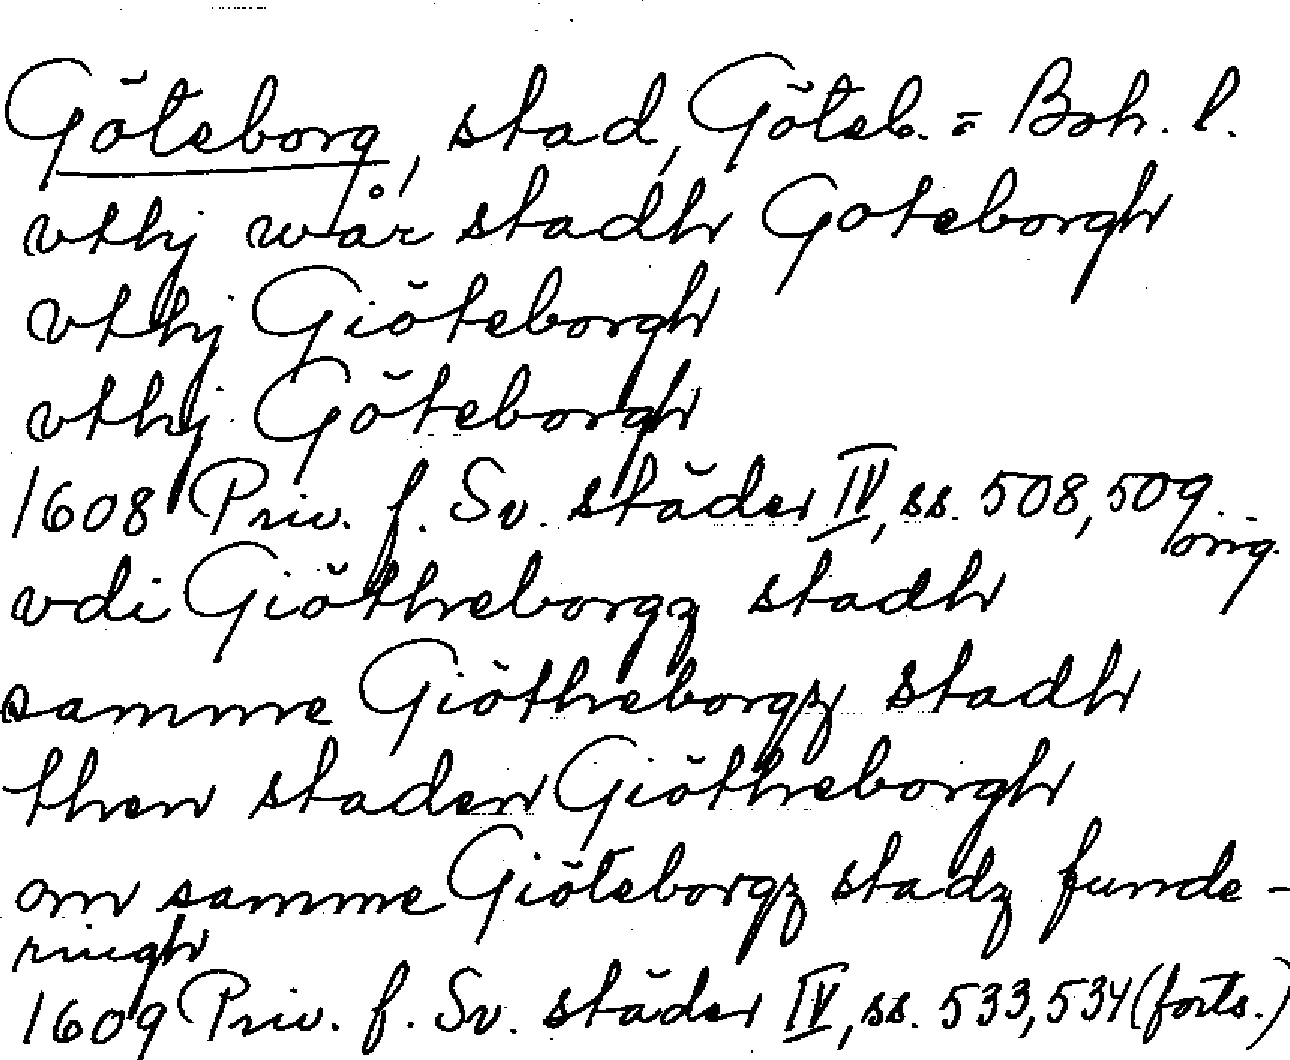 Göteborg, stad, Göteb. = Boh. l.
vthj wår stadh Goteborgh
vthj Giöteborgh
vthj Göteborgh
1608 Priv. f. Sv. städer IV, ss. 508, 509.
orig.
vdi Giötheborgz stadh
samme Giötheborgz stadh
then staden Giötheborgh
om samme Giöteborgz stadz funde-
ringh
1609 Priv. f. Sv. städer IV, ss. 533, 534 (forts.)